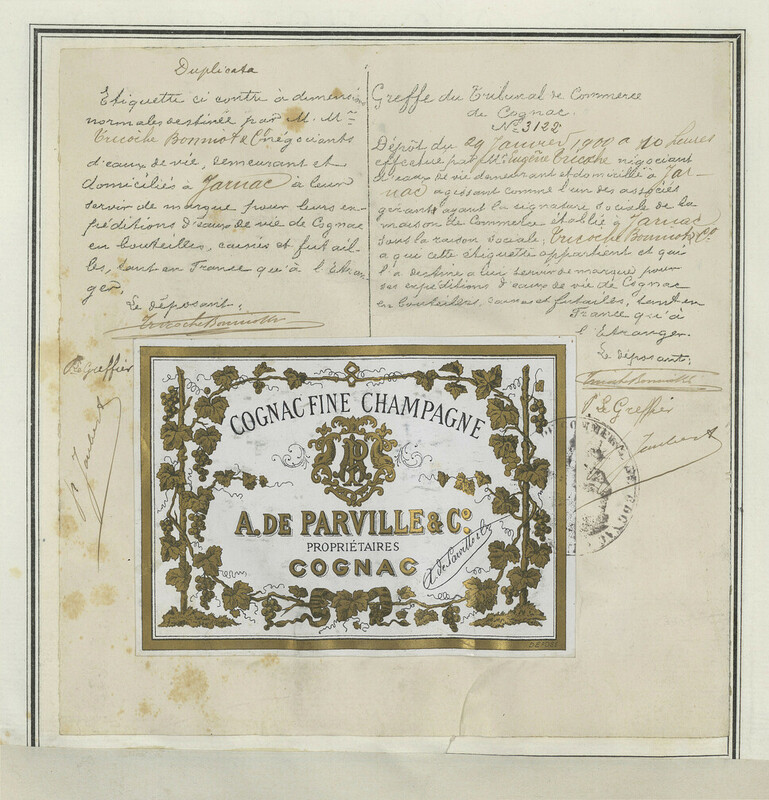 Duplicata
Etiquette ci contre à dimension
normales destinée par M. M.rs
Tricoche Bonniot & Cie négociants
d'eaux de vie, demeurant et
domiciliés à Jarnac à leur
servir de marque pour leurs ex-
péditions d'eaux de vie de Cognac
en bouteilles, caisses et futail
les, tant en France qu'à l'Etran
ger,
Le déposant:
Tricoche Bonniot &
P. Le Greffier
P. Jaubert
Greffe du Tribunal de Commerce
de Cognac.
No 3122
Dépôt du 29 Janvier 1900 à 10 heures
effectué par Mr Eugène Tricoche négociant
d'eaux de vie demeurant et domicilié à Jar-
nac agissant comme l'un des associés
gérants ayant la signature sociale de la
maison de Commerce établie à Jarnac
sous la raison sociale, Tricoche Bonniot & Cº
à qui cette étiquette appartient et qui
l'a destine à leur servir de marque pour
ses expéditions d'eaux de vie de Cognac
en bouteilles, caisses et futailles, tant en
France qu'à
l'Etranger.
Le déposant:
Tricoche Bonniot &
P. Le Greffier
Jaubert
COGNAC FINE CHAMPAGNE
A. DE PARVILLE & Cº.
PROPRIÉTAIRES
COGNAC
A. de Parville & Cº
COMMERCE DE COGNAC